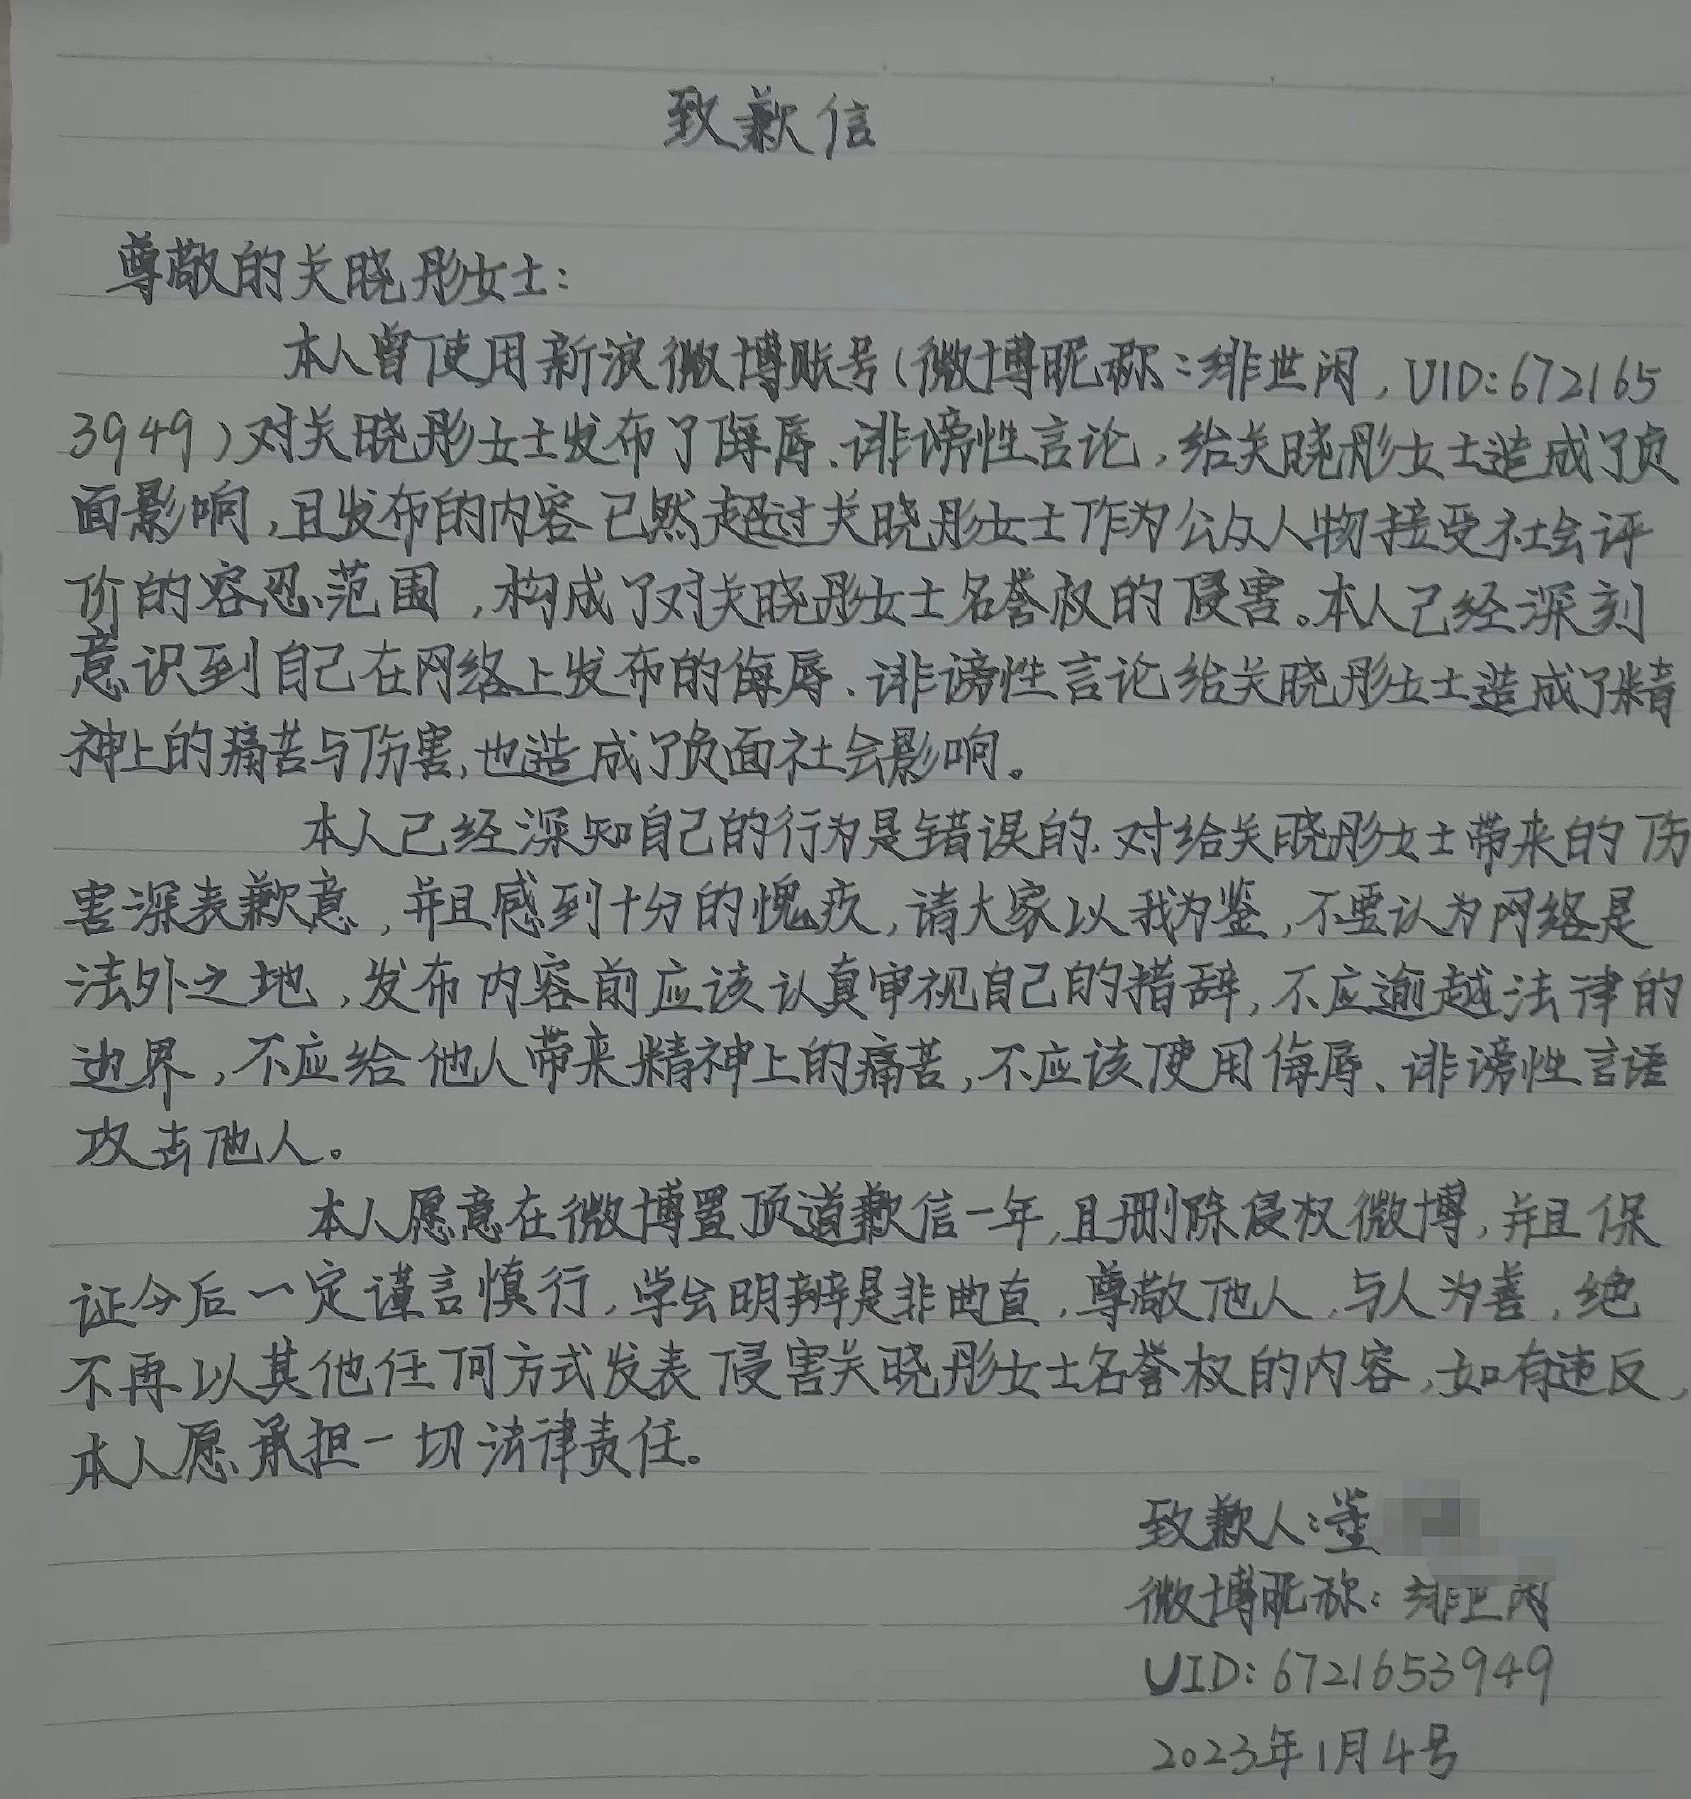 致歉信
尊敬的关晓彤女士：
本人曾使用新浪微博账号（微博昵称：绯世闲，UID：672165
3949）对关晓彤女士发布了侮辱、诽谤性言论，给关晓彤女士造成了负
面影响，且发布的内容已然超过关晓彤女士作为公众人物接受社会评
价的容忍范围，构成了对关晓彤女士名誉权的侵害。本人已经深刻
意识到自己在网络上发布的侮辱、诽谤性言论给关晓彤女士造成了精
神上的痛苦与伤害，也造成了负面社会影响。
本人已经深知自己的行为是错误的，对给关晓彤女士带来的伤
害深表歉意，并且感到十分的愧疚，请大家以我为鉴，不要认为网络是
法外之地，发布内容前应该认真审视自己的措辞，不应逾越法律的
边界，不应给他人带来精神上的痛苦，不应该使用侮辱、诽谤性言语
攻击他人。
本人愿意在微博置顶道歉信一年，且删除侵权微博，并且保
证今后一定谨言慎行，学会明辨是非曲直，尊敬他人，与人为善，绝
不再以其他任何方式发表侵害关晓彤女士名誉权的内容，如有违反，
本人愿承担一切法律责任。
致歉人：董
微博昵称：绯世闲
UID：6721653949
2023年1月4号